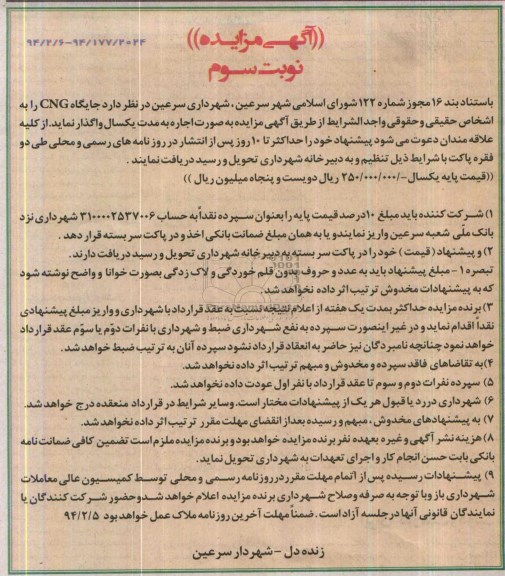 ((آگهی مزایده))
۹۴/۲/۶-۹۴/۱۷۷/۲۰۲۴
نوبت سوم
باستناد بند ۱۶ مجوز شماره ۱۲۲ شورای اسلامی شهر سرعین ، شهرداری سرعین در نظر دارد جایگاه CNG را به
اشخاص حقیقی و حقوقی واجد الشرایط از طریق آگهی مزایده به صورت اجاره به مدت یکسال واگذار نماید. از کلیه
علاقه مندان دعوت می شود پیشنهاد خود را حداکثر تا ۱۰ روز پس از انتشار در روزنامه های رسمی و محلی طی دو
فقره پاکت با شرایط ذیل تنظیم و به دبیرخانه شهرداری تحویل و رسید دریافت نمایند .
((قیمت پایه یکسال -/۲۵۰/۰۰۰/۰۰۰ ریال دویست و پنجاه میلیون ریال ))
۱) شرکت کننده باید مبلغ ۱۰درصد قیمت پایه را بعنوان سپرده نقداً به حساب ۳۱۰۰۰۰۲۵۳۷۰۰۶ شهرداری نزد
بانک ملّی شعبه سرعین واریز نماید و یا به همان مبلغ ضمانت بانکی اخذ و در پاکت سر بسته قرار دهد .
۲) و پیشنهاد ( قیمت ) خود را در پاکت سر بسته به دبیرخانه شهرداری تحویل و رسید دریافت دارند.
تبصره ۱- مبلغ پیشنهاد باید به عدد و حروف بدون قلم خوردگی و لاک زدگی بصورت خوانا و واضح نوشته شود
که به پیشنهادات مخدوش ترتیب اثر داده نخواهد شد.
۳) برنده مزایده حداکثر بمدت یک هفته از اعلام نتیجه نسبت به عقد قرارداد با شهرداری و واریز مبلغ پیشنهادی
نقداً اقدام نماید و در غیر اینصورت سپرده به نفع شهرداری ضبط و شهرداری با نفرات دوّم یا سوّم عقد قرارداد
خواهد نمود چنانچه نامبردگان نیز حاضر به انعقاد قرارداد نشود سپرده آنان به ترتیب ضبط خواهد شد.
۴) به تقاضاهای فاقد سپرده و مخدوش و مبهم ترتیب اثر داده نخواهد شد.
۵) سپرده نفرات دوم و سوم تا عقد قرارداد با نفر اول عودت داده نخواهد شد.
۶) شهرداری در رد یا قبول هر یک از پیشنهادات مختار است. و سایر شرایط در قرارداد منعقده درج خواهد شد.
۷) به پیشنهادهای مخدوش ، مبهم و رسیده بعد از انقضای مهلت مقرر ترتیب اثر داده نخواهد شد.
۸) هزینه نشر آگهی و غیره بعهده نفر برنده مزایده خواهد بود و برنده مزایده ملزم است تضمین کافی ضمانت نامه
بانکی بابت حسن انجام کار و اجرای تعهدات به شهرداری تحویل نماید.
۹) پیشنهادات رسیده پس از اتمام مهلت مقرر در روزنامه رسمی و محلی توسط کمیسیون عالی معاملات
شهرداری باز و با توجه به صرفه وصلاح شهرداری برنده مزایده اعلام خواهد شد و حضور شرکت کنندگان یا
نمایندگان قانونی آنها در جلسه آزاد است. ضمناً مهلت آخرین روزنامه ملاک عمل خواهد بود ۹۴/۲/۵
زنده دل - شهردار سرعین